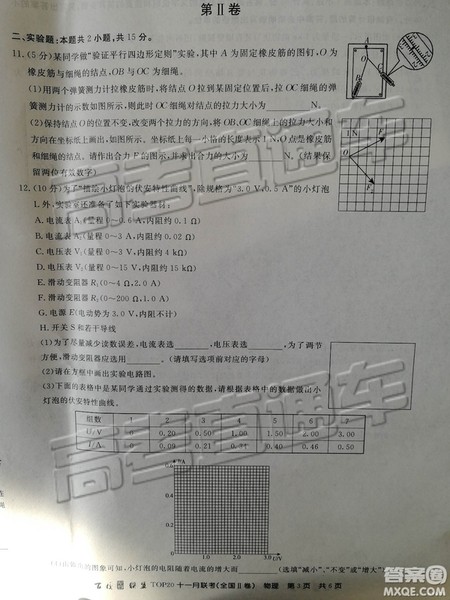 第Ⅱ卷
二、实验题:本题共2小题,共15分。
11.(5分)某同学做“验证平行四边形定则”实验,其中A为固定橡皮筋的图钉,O为
橡皮筋与细绳的结点,OB与OC为细绳。
(1)用两个弹簧测力计拉橡皮筋时,将结点O拉到某固定位置时,拉力大小的弹
簧测力计的示数如图所示,则此时OC绳对结点的拉力大小为 N。
(2)保持结点O的位置不变,改变两个拉力的方向,将OB、OC绳上的拉力大小和
方向在坐标纸上画出,如图所示。坐标纸上每一小格的长度表示1N,O点是橡皮筋
和细绳的结点。请作出合力F的图示,并求出合力的大小为 N。(结果保
留两位有效数字)
12.(10分)为了“描绘小灯泡的伏安特性曲线”,除规格为“3.0V,0.5A”的小灯泡
L外,实验室有以下实验器材:
A.电流表A₁(量程0~0.6A,内阻约0.1Ω)
B.电流表A₂(量程0~3A,内阻约0.02Ω)
C.电压表V₁(量程0~3V,内阻约3kΩ)
D.电压表V₂(量程0~15V,内阻约15kΩ)
E.滑动变阻器R₁(0~4Ω,2.0A)
F.滑动变阻器R₂(0~200Ω,1.0A)
G.电源E(电动势为3.0V,内阻不计)
H.开关S和若干导线
(1)为了尽量减少读数误差,电流表选 ,电压表选 ,为了调节
方便,滑动变阻器应选用 。(请填写选项前对应的字母)
(2)请在方框中画出实验电路图。
(3)下面的表格中是某同学通过实验测得的数据,请根据数据描绘出小
灯泡的伏安特性曲线。
组数 1 2 3 4 5 6 7
U/V 0 0.20 0.50 1.00 1.50 2.00 3.00
I/A 0 0.09 0.21 0.34 0.40 0.46 0.50
A
B
C
O
1N
O
F₁
F₂
I/A
0.6
0.4
0.2
0 1.0 2.0 3.0 U/V
(4)由描绘出的图象可知,小灯泡的电阻随着电流的增大而 (选填“减小”、“不变”或“增大”)
TOP20 十一月联考(全国Ⅱ卷) 物理 第3页 共6页
高考直通车
高考直通车
答案圈
MXQE.COM